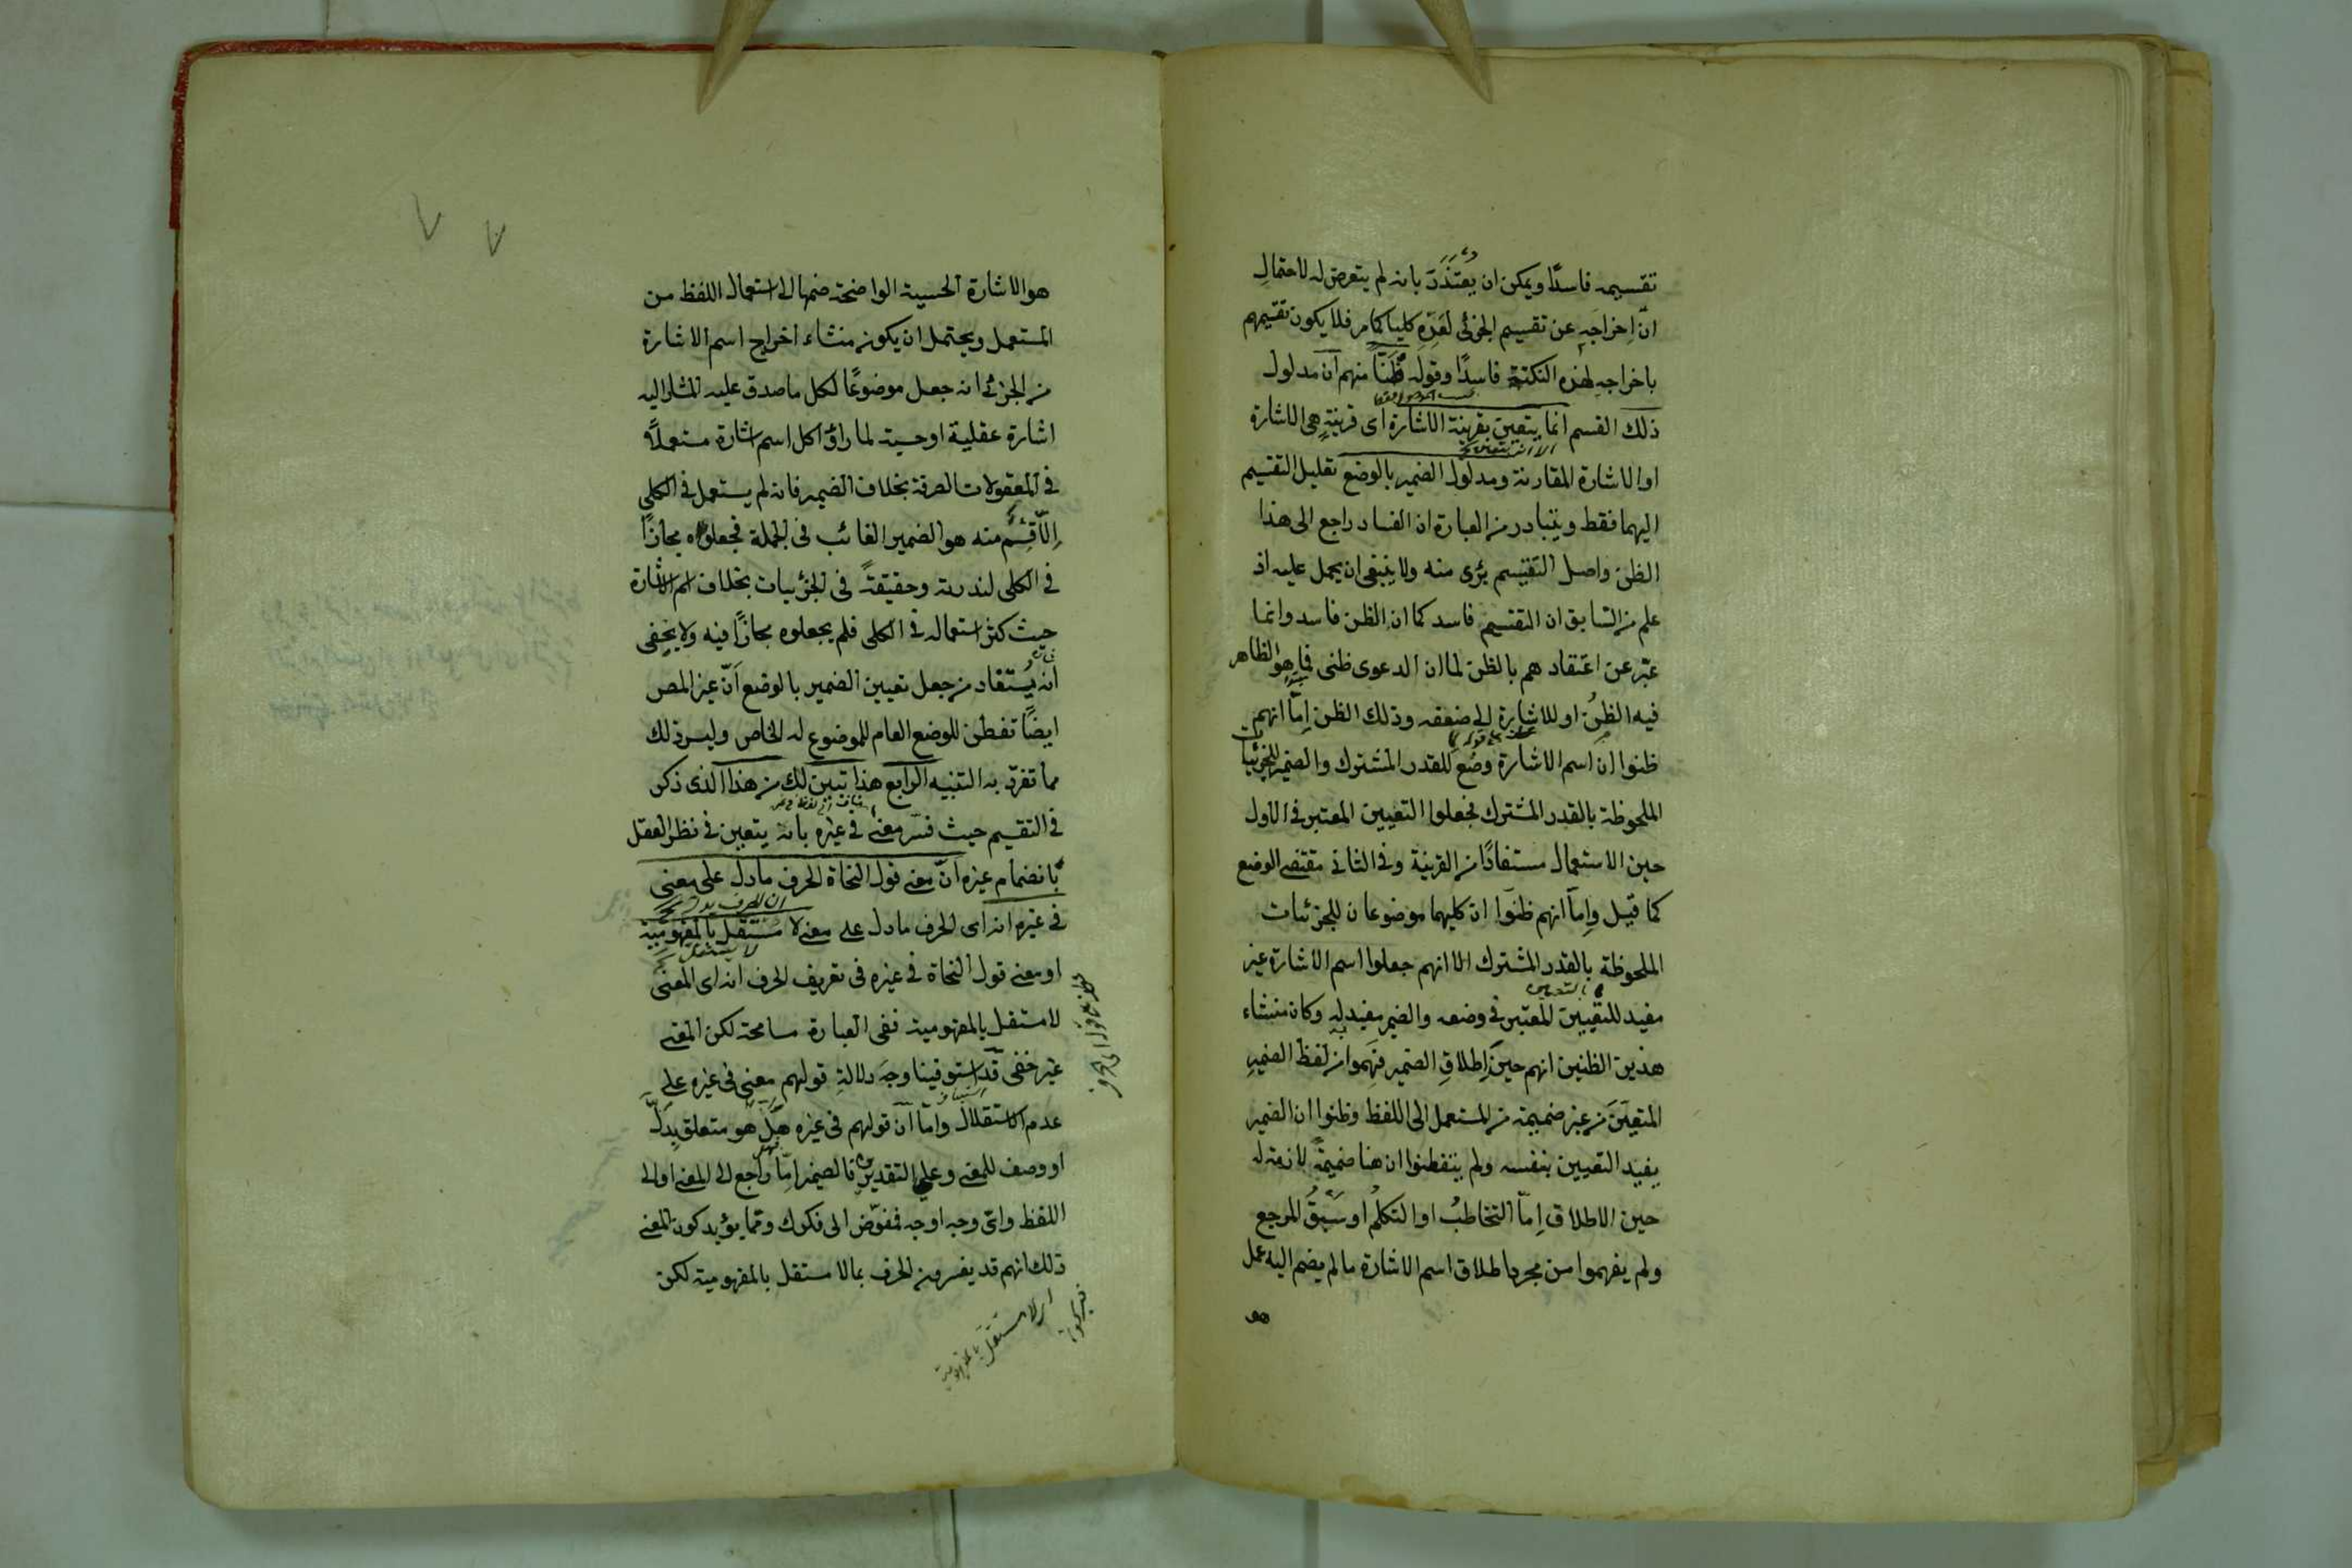 تقسيمه فاسدًا ويمكن ان يُعتَذَرَ بانه لم يتعرض له لاحتمالِ
انّ اِخراجَه عن تقسيم الجزئى لعَدِّهِ كليا كما مر فلا يكون تقسيمهم
باخراجهِ لهذه النكتة فاسدًا وقوله ظَنًّا منهم ان مدلول
ذلك القسم انما يتعين بقرينة الاشارة اى قرينةٍ هى الاشارة
او الاشارة المقارنة ومدلول الضمير بالوضع تعليل التقسيم
اليهما فقط ويتبادر من العبارة ان الفساد راجع الى هذا
الظن واصل التقسيم برى منه ولا ينبغى ان يحمل عليه اذ
علم من السابق ان التقسيم فاسد كما ان الظن فاسد وانما
عبّر عن اعتقادهم بالظن لما ان الدعوى ظنى فما هو الظاهر
فيه الظنُ او للاشارة الى ضعفه وذلك الظن اِمّا انهم
ظنوا ان اسم الاشارة وضع للقدر المشترك والضمير للجزئيات
الملحوظة بالقدر المشترك فجعلوا التعيين المعتبر فى الاول
حين الاستعمال مستفادًا من القرينة وفى الثانى مقتضى الوضع
كما قيل واِما انهم ظنوا ان كليهما موضوعان للجزئيات
الملحوظة بالقدر المشترك الا انهم جعلوا اسم الاشارة غير
مفيد للتعيين المعتبر فى وضعه والضمير مفيد له وكان منشاء
هذين الظنين انهم حينَ اِطلاقِ الضمير فهِموا من لفظ الضميرِ
المتعيّنَ من غير ضميمة من المستعمل الى اللفظ وظنوا ان الضمير
يفيد التعيين بنفسه ولم يتفطنوا ان هنا ضميمةً لازمة له
حين الاطلاق اِمّا التخاطبُ او التكلمُ او سَبْقُ المرجع
ولم يفهموا من مجرد اطلاق اسم الاشارة ما لم يضم اليه عمل
هو
هو الاشارة الحسية الواضحة ضمها الى استعمال اللفظ من
المستعمل ويحتمل ان يكون منشاء اخراج اسم الاشارة
من الجزئى انه جعل موضوعًا لكل ما صدق عليه المشار اليه
اشارة عقلية او حسية لما راوْا كل اسم اشارة مستعملًا
فى المعقولات الصرفة بخلاف الضمير فانه لم يستعمل فى الكلى
اِلّا قِسْمٌ منه هو الضمير الغائب فى الجملة فجعلوه مجازًا
فى الكلى لندرته وحقيقةً فى الجزئيات بخلاف اسم الاشارة
حيث كثر استعماله فى الكلى فلم يجعلوه مجازًا فيه ولا يخفى
انه يُستفاد من جعل تعيين الضمير بالوضع اَنّ غير المص
ايضًا تفطن للوضع العام للموضوع له الخاص وليس ذلك
مما تفرّد به التنبيه الرابع هذا تبين لك من هذا الذى ذكر
فى التقسيم حيث فسّر معنى فى غيره بانه يتعين فى نظر العقل
بانضمام غيره انّ معنى قول النحاة الحرف ما دل على معنى
فى غيره انه اى الحرف ما دل على معنى لا مستقل بالمفهومية
او معنى قول النحاة فى غيره فى تعريف الحرف انه اى المعنى
لا مستقل بالمفهومية ففى العبارة مسامحة لكن المعنى
غير خفى قد استوفينا وجهَ دلالةِ قولهم معنى فى غيره على
عدم الاستقلال واما ان قولهم فى غيره هل هو متعلق بدَلّ
او وصف للمعنى وعلى التقديرين فالضمير اِمّا راجع الى المعنى او الى
اللفظ واىّ وجه اوجه ففوّض الى فكرك ومّما يؤيد كون المعنى
ذلك انهم قد يفسرون الحرف بما لا مستقل بالمفهومية لكن
لا مستقل بالمفهومية